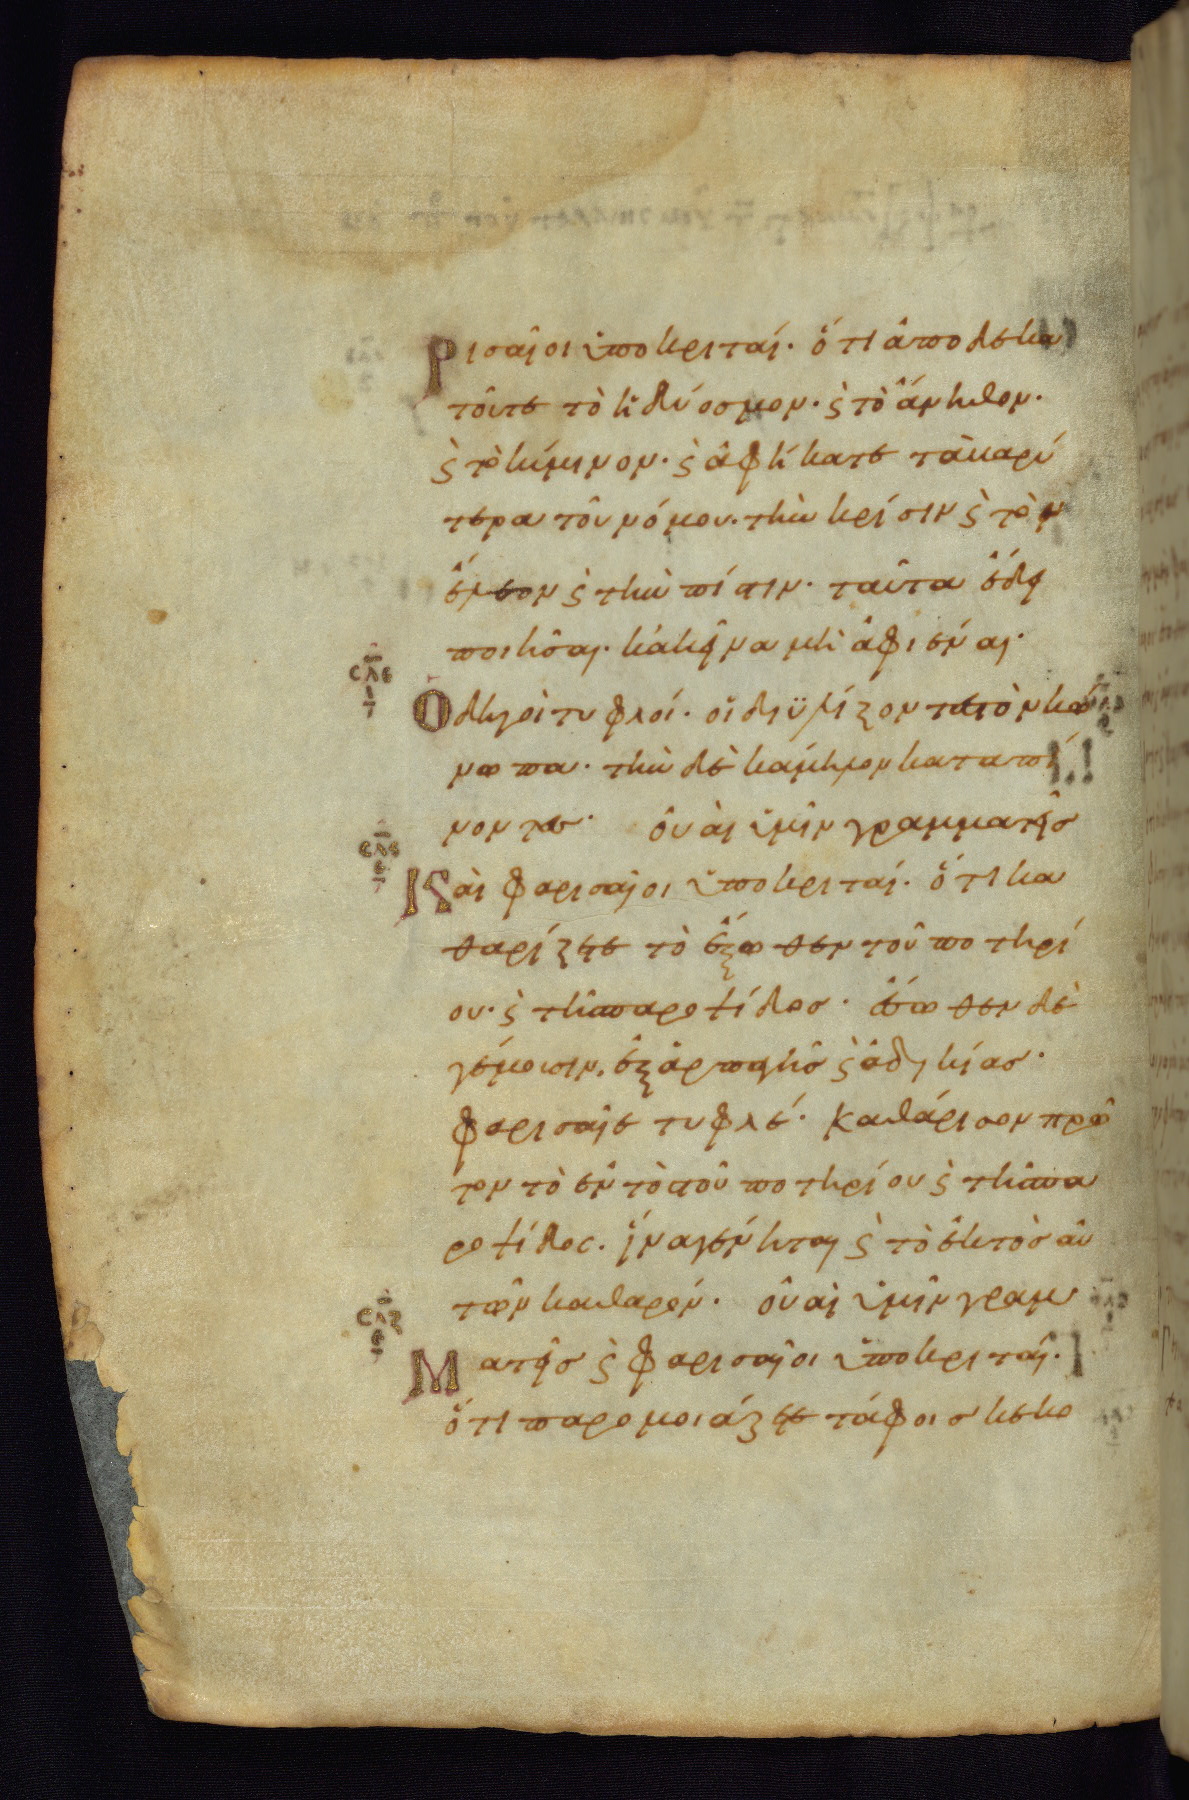 ρισαῖοι ὑποκριταί· ὅτι ἀποδεκα
τοῦτε τὸ ἡδύοσμον· ϗ τὸ ἄνηθον·
ϗ τὸ κύμινον· ϗ ἀφήκατε τὰ βαρύ
τερα τοῦ νόμου· τὴν κρίσιν ϗ τὸν
ἔλεον ϗ τὴν πίστιν· ταῦτα ἔδει
ποιῆσαι· κἀκεῖνα μὴ ἀφιέναι·
σλε
Ὁδηγοὶ τυφλοί· οἱ διϋλίζοντες τὸν κώ
νωπα· τὴν δὲ κάμηλον καταπί
νοντες· οὐαὶ ὑμῖν γραμματεῖς
σλϛ
ε
Καὶ φαρισαῖοι ὑποκριταί· ὅτι κα
θαρίζετε τὸ ἔξωθεν τοῦ ποτηρί
ου· ϗ τῆς παροψίδος· ἔσωθεν δὲ
γέμουσιν, ἐξ ἁρπαγῆς ϗ ἀδικίας·
φαρισαῖε τυφλέ· καθάρισον πρῶ
τον τὸ ἐντὸς τοῦ ποτηρίου ϗ τῆς πα
ροψίδος· ἵνα γένηται ϗ τὸ ἐκτὸς αὐ
τῶν καθαρόν· οὐαὶ ὑμῖν γραμ
σλζ
ε
Ματεῖς ϗ φαρισαῖοι ὑποκριταί·
ὅτι παρομοιάζετε τάφοις κεκο